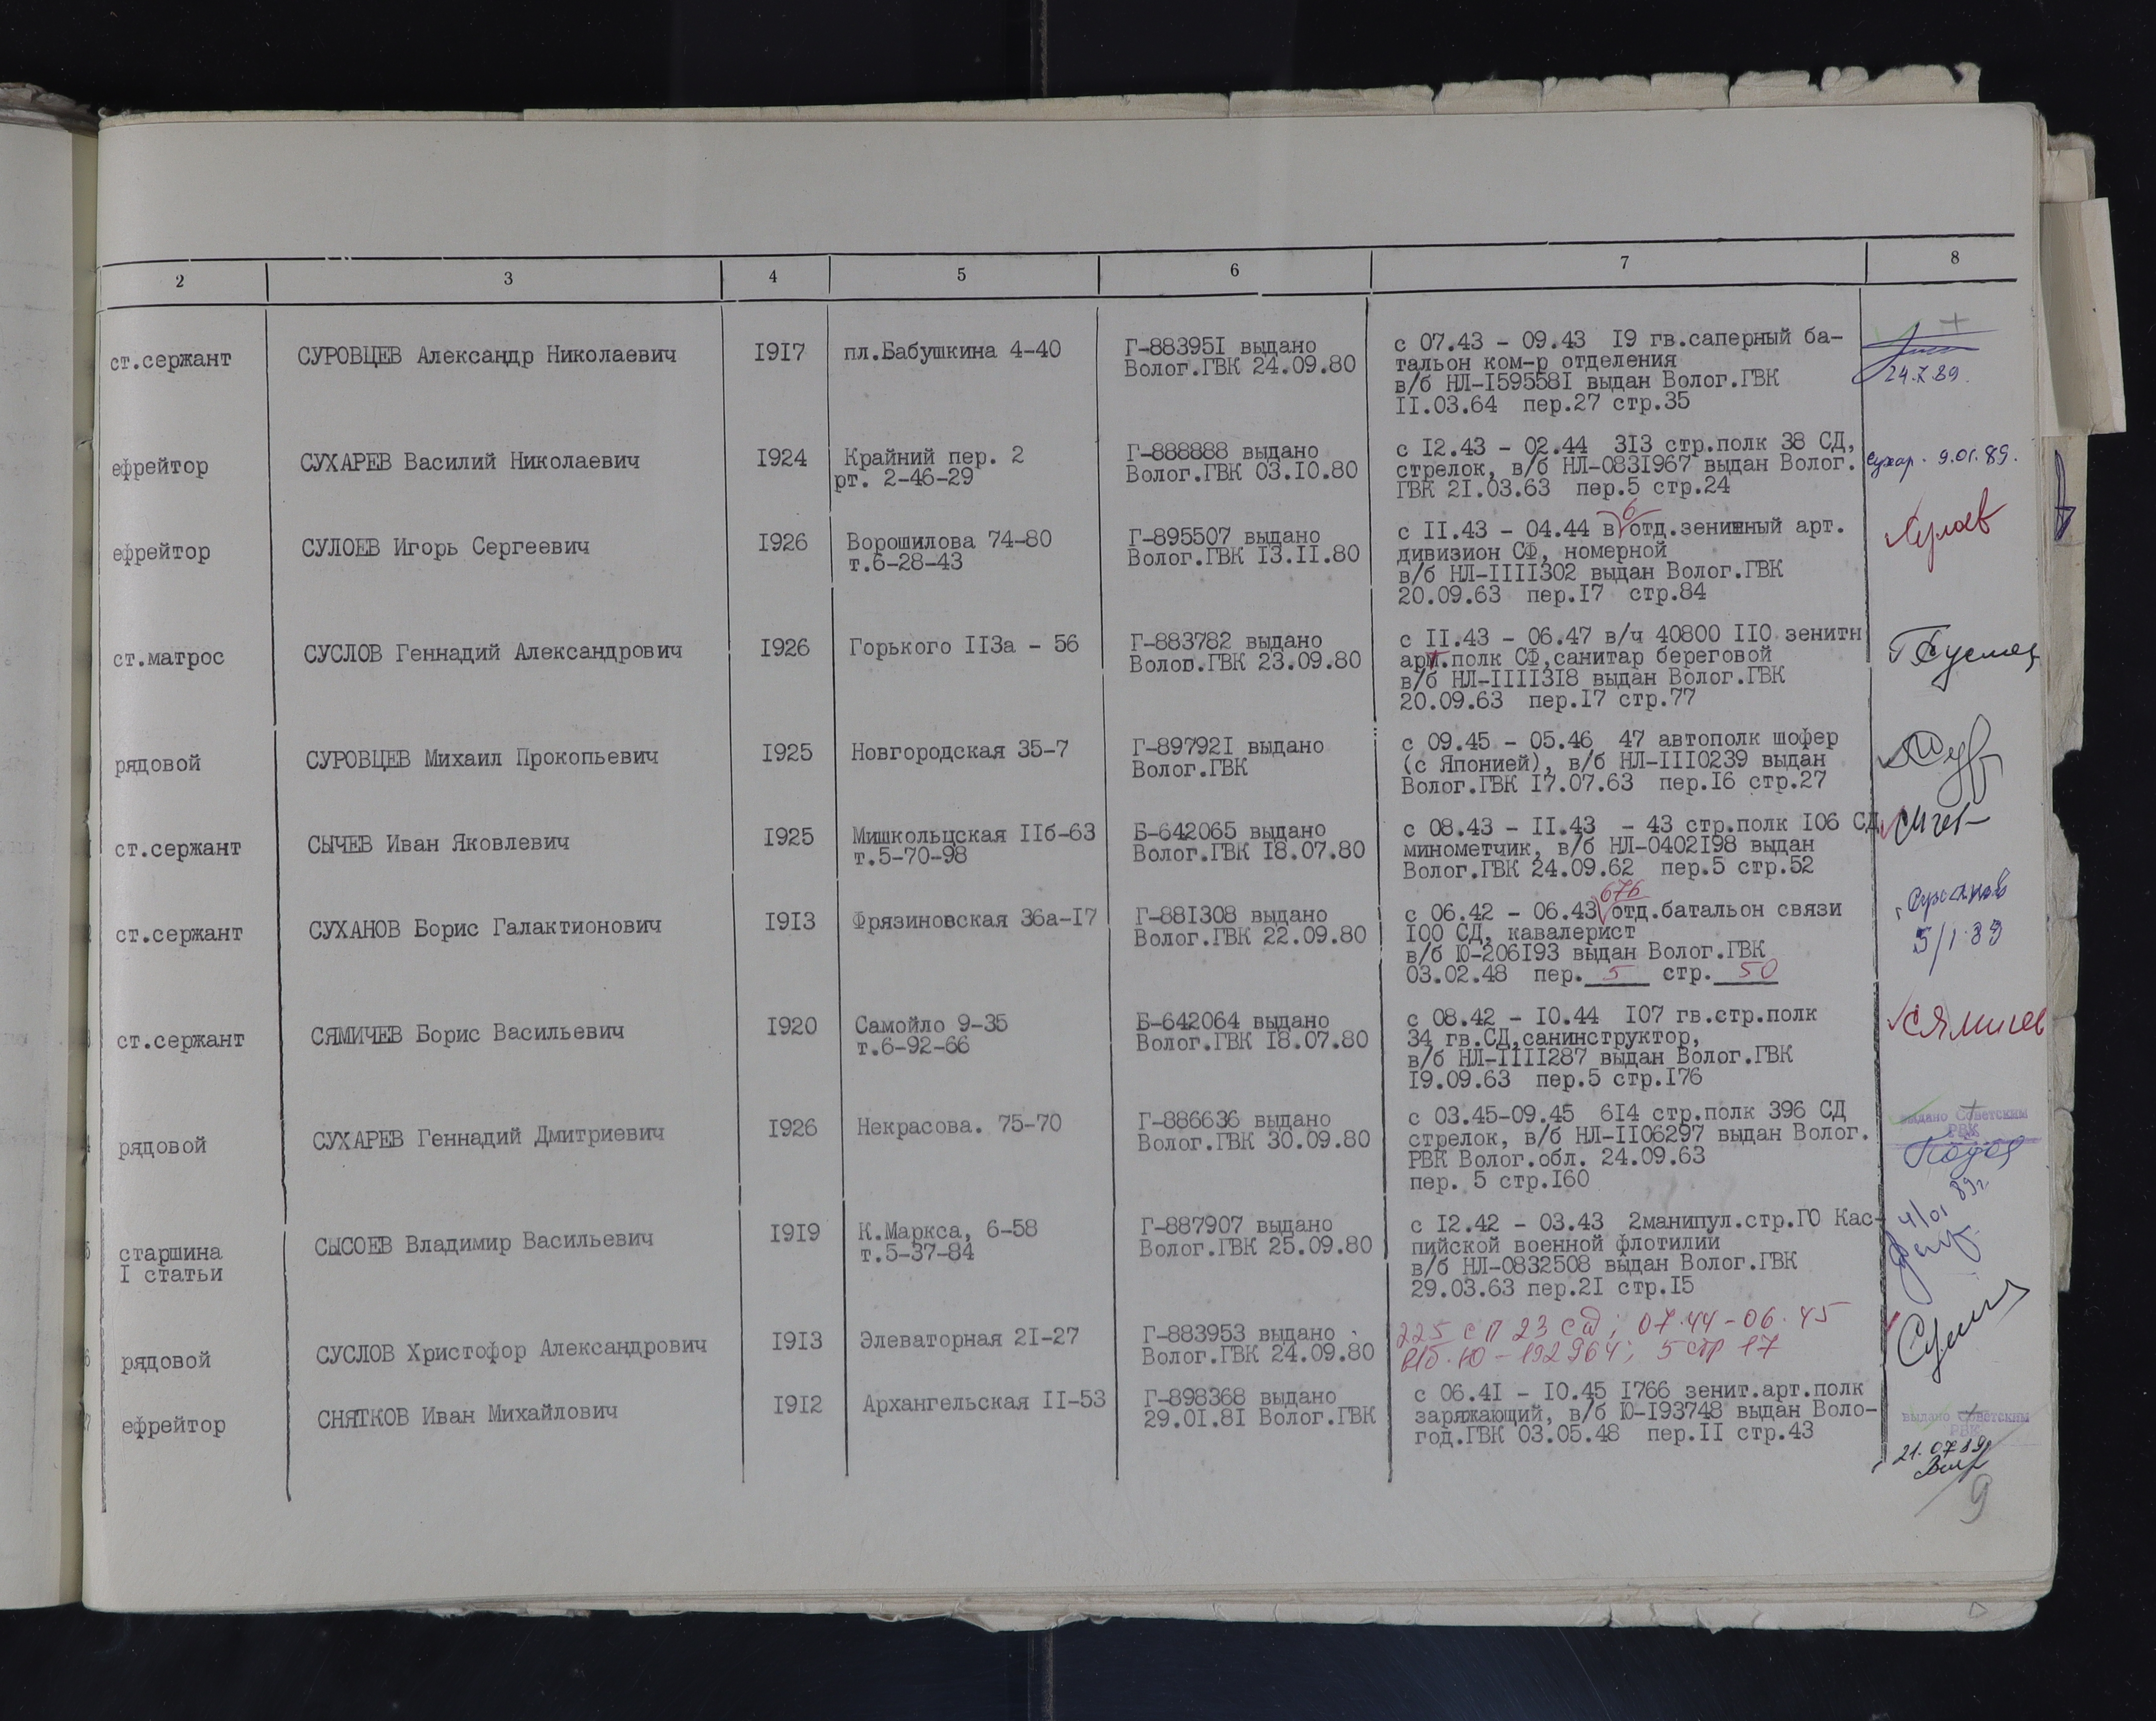 2 3 4 5 6 7 8
ст.сержант СУРОВЦЕВ Александр Николаевич I9I7 пл.Бабушкина 4-40 Г-88395I выдано с 07.43 - 09.43 I9 гв.саперный ба-
Волог.ГВК 24.09.80 тальон ком-р отделения
в/б НЛ-I59558I выдан Волог.ГВК 24.7.89.
II.03.64 пер.27 стр.35
ефрейтор СУХАРЕВ Василий Николаевич I924 Крайний пер. 2 Г-888888 выдано с I2.43 - 02.44 3I3 стр.полк 38 СД,
рт. 2-46-29 Волог.ГВК 03.I0.80 стрелок, в/б НЛ-083I967 выдан Волог. Сухар. 9.01.89.
ГВК 2I.03.63 пер.5 стр.24
ефрейтор СУЛОЕВ Игорь Сергеевич I926 Ворошилова 74-80 Г-895507 выдано с II.43 - 04.44 в 6 отд.зенитный арт. Сулоев
т.6-28-43 Волог.ГВК I3.II.80 дивизион СФ, номерной
в/б НЛ-IIII302 выдан Волог.ГВК
20.09.63 пер.I7 стр.84
ст.матрос СУСЛОВ Геннадий Александрович I926 Горького II3а - 56 Г-883782 выдано с II.43 - 06.47 в/ч 40800 II0 зенитн
Волов.ГВК 23.09.80 арт.полк СФ,санитар береговой
в/б НЛ-IIII3I8 выдан Волог.ГВК
20.09.63 пер.I7 стр.77
рядовой СУРОВЦЕВ Михаил Прокопьевич I925 Новгородская 35-7 Г-89792I выдано с 09.45 - 05.46 47 автополк шофер
Волог.ГВК (с Японией), в/б НЛ-III0239 выдан
Волог.ГВК I7.07.63 пер.I6 стр.27
ст.сержант СЫЧЕВ Иван Яковлевич I925 Мишкольцская IIб-63 Б-642065 выдано с 08.43 - II.43 - 43 стр.полк I06 СД
т.5-70-98 Волог.ГВК I8.07.80 минометчик, в/б НЛ-0402I98 выдан
Волог.ГВК 24.09.62 пер.5 стр.52
ст.сержант СУХАНОВ Борис Галактионович I9I3 Фрязиновская 36а-I7 Г-88I308 выдано с 06.42 - 06.43 676 отд.батальон связи Суханов
Волог.ГВК 22.09.80 I00 СД, кавалерист 5/1.89
в/б Ю-206I93 выдан Волог.ГВК
03.02.48 пер. 5 стр. 50
ст.сержант СЯМИЧЕВ Борис Васильевич I920 Самойло 9-35 Б-642064 выдано с 08.42 - I0.44 I07 гв.стр.полк Сямичев
т.6-92-66 Волог.ГВК I8.07.80 34 гв.СД,санинструктор,
в/б НЛ-IIII287 выдан Волог.ГВК
I9.09.63 пер.5 стр.I76
рядовой СУХАРЕВ Геннадий Дмитриевич I926 Некрасова. 75-70 Г-886636 выдано с 03.45-09.45 6I4 стр.полк 396 СД выдано Советским
Волог.ГВК 30.09.80 стрелок, в/б НЛ-II06297 выдан Волог. РВК
РВК Волог.обл. 24.09.63
пер. 5 стр.I60
старшина СЫСОЕВ Владимир Васильевич I9I9 К.Маркса, 6-58 Г-887907 выдано с I2.42 - 03.43 2манипул.стр.ГО Кас- 4/01 89г.
I статьи т.5-37-84 Волог.ГВК 25.09.80 пийской военной флотилии
в/б НЛ-0832508 выдан Волог.ГВК
29.03.63 пер.2I стр.I5
рядовой СУСЛОВ Христофор Александрович I9I3 Элеваторная 2I-27 Г-883953 выдано 225 сп 23 сд; 07.44-06.45
Волог.ГВК 24.09.80 в/б.Ю-192964; 5 стр 17
ефрейтор СНЯТКОВ Иван Михайлович I9I2 Архангельская II-53 Г-898368 выдано с 06.4I - I0.45 I766 зенит.арт.полк выдано Советским
29.0I.8I Волог.ГВК заряжающий, в/б Ю-I93748 выдан Воло- РВК
год.ГВК 03.05.48 пер.II стр.43 21.07.89
9